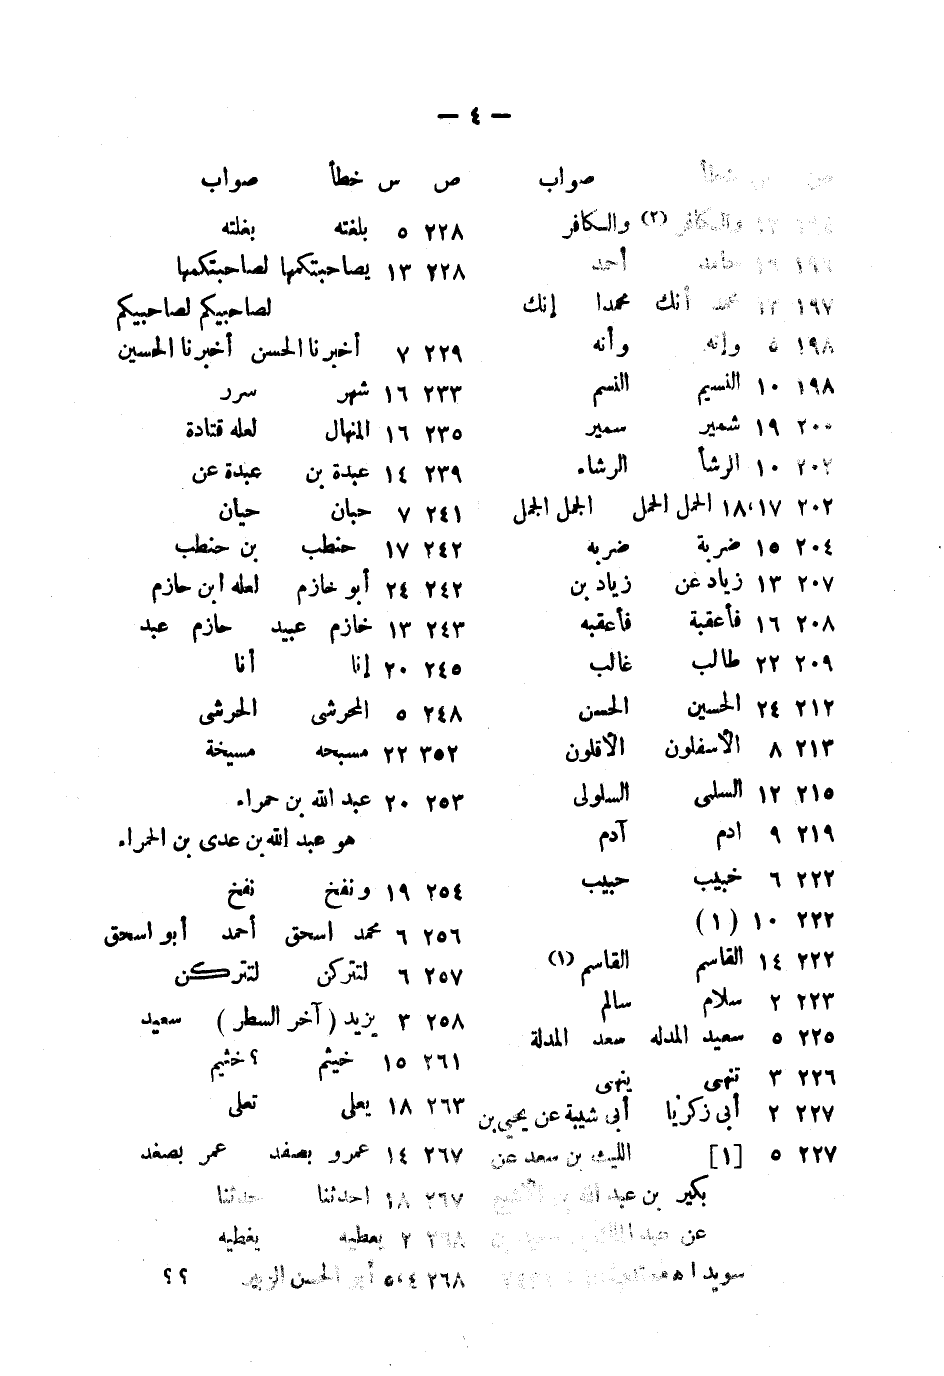 — ٤ —
صواب
والكافر (٢) والكافر
أحد
١٩٧ ١٢ محمد أنك محمدا إنك
١٩٨ ٥ وإنه وأنه
١٩٨ ١٠ النسيم النسم
٢٠٠ ١٩ شمير سمير
٢٠٢ ١٠ الرشأ الرشاء
٢٠٢ ١٨،١٧ الحمل الحمل الجمل الجمل
٢٠٤ ١٥ ضربة ضربه
٢٠٧ ١٣ زياد عن زياد بن
٢٠٨ ١٦ فأعقبة فأعقبه
٢٠٩ ٢٢ طالب غالب
٢١٢ ٢٤ الحسين الحسن
٢١٣ ٨ الأسفلون الأقلون
٢١٥ ١٢ السلمى السلولى
٢١٩ ٩ ادم آدم
٢٢٢ ٦ خبيب حبيب
٢٢٢ ١٠ (١)
٢٢٢ ١٤ القاسم القاسم (١)
٢٢٣ ٢ سلام سالم
٢٢٥ ٥ سعيد المدله سعد المدلة
٢٢٦ ٣ تنهى ينهى
٢٢٧ ٢ أبى زكريا أبى شيبة عن يحيى بن
٢٢٧ ٥ [١] الليث بن سعد عن
بكير بن عبد الله بن الأشج
عن عبد
سويد اه
ص س خطأ صواب
٢٢٨ ٥ بلغته بغلته
٢٢٨ ١٣ يصاحبتكمها لصاحبتكمها
لصاحبيكم لصاحبيكم
٢٢٩ ٧ أخبرنا الحسن أخبرنا الحسين
٢٣٣ ١٦ شهر سرر
٢٣٥ ١٦ المنهال لعله قتادة
٢٣٩ ١٤ عبدة بن عبدة عن
٢٤١ ٧ حبان حيان
٢٤٢ ١٧ حنطب بن حنطب
٢٤٢ ٢٤ أبو خازم لعله ابن حازم
٢٤٣ ١٣ خازم عبيد حازم عبد
٢٤٥ ٢٠ إنا أنا
٢٤٨ ٥ المحرشى الحرشى
٣٥٢ ٢٢ مسبحه مسيخة
٢٥٣ ٢٠ عبد الله بن حمراء
هو عبد الله بن عدى بن الحمراء
٢٥٤ ١٩ ونفخ نفخ
٢٥٦ ٦ محمد اسحق أحمد أبو اسحق
٢٥٧ ٦ لتتركن لتتركن
٢٥٨ ٣ يزيد (آخر السطر) سعيد
٢٦١ ١٥ خيثم ؟ خثيم
٢٦٣ ١٨ يعلى تعلى
٢٦٧ ١٤ عمرو بصفد عمر بصغد
٢٦٧ ١٨ احدثنا حدثنا
٢ يعطيه يغطيه
٢٦٨ ٥،٤ أبو الحسن ؟ ؟